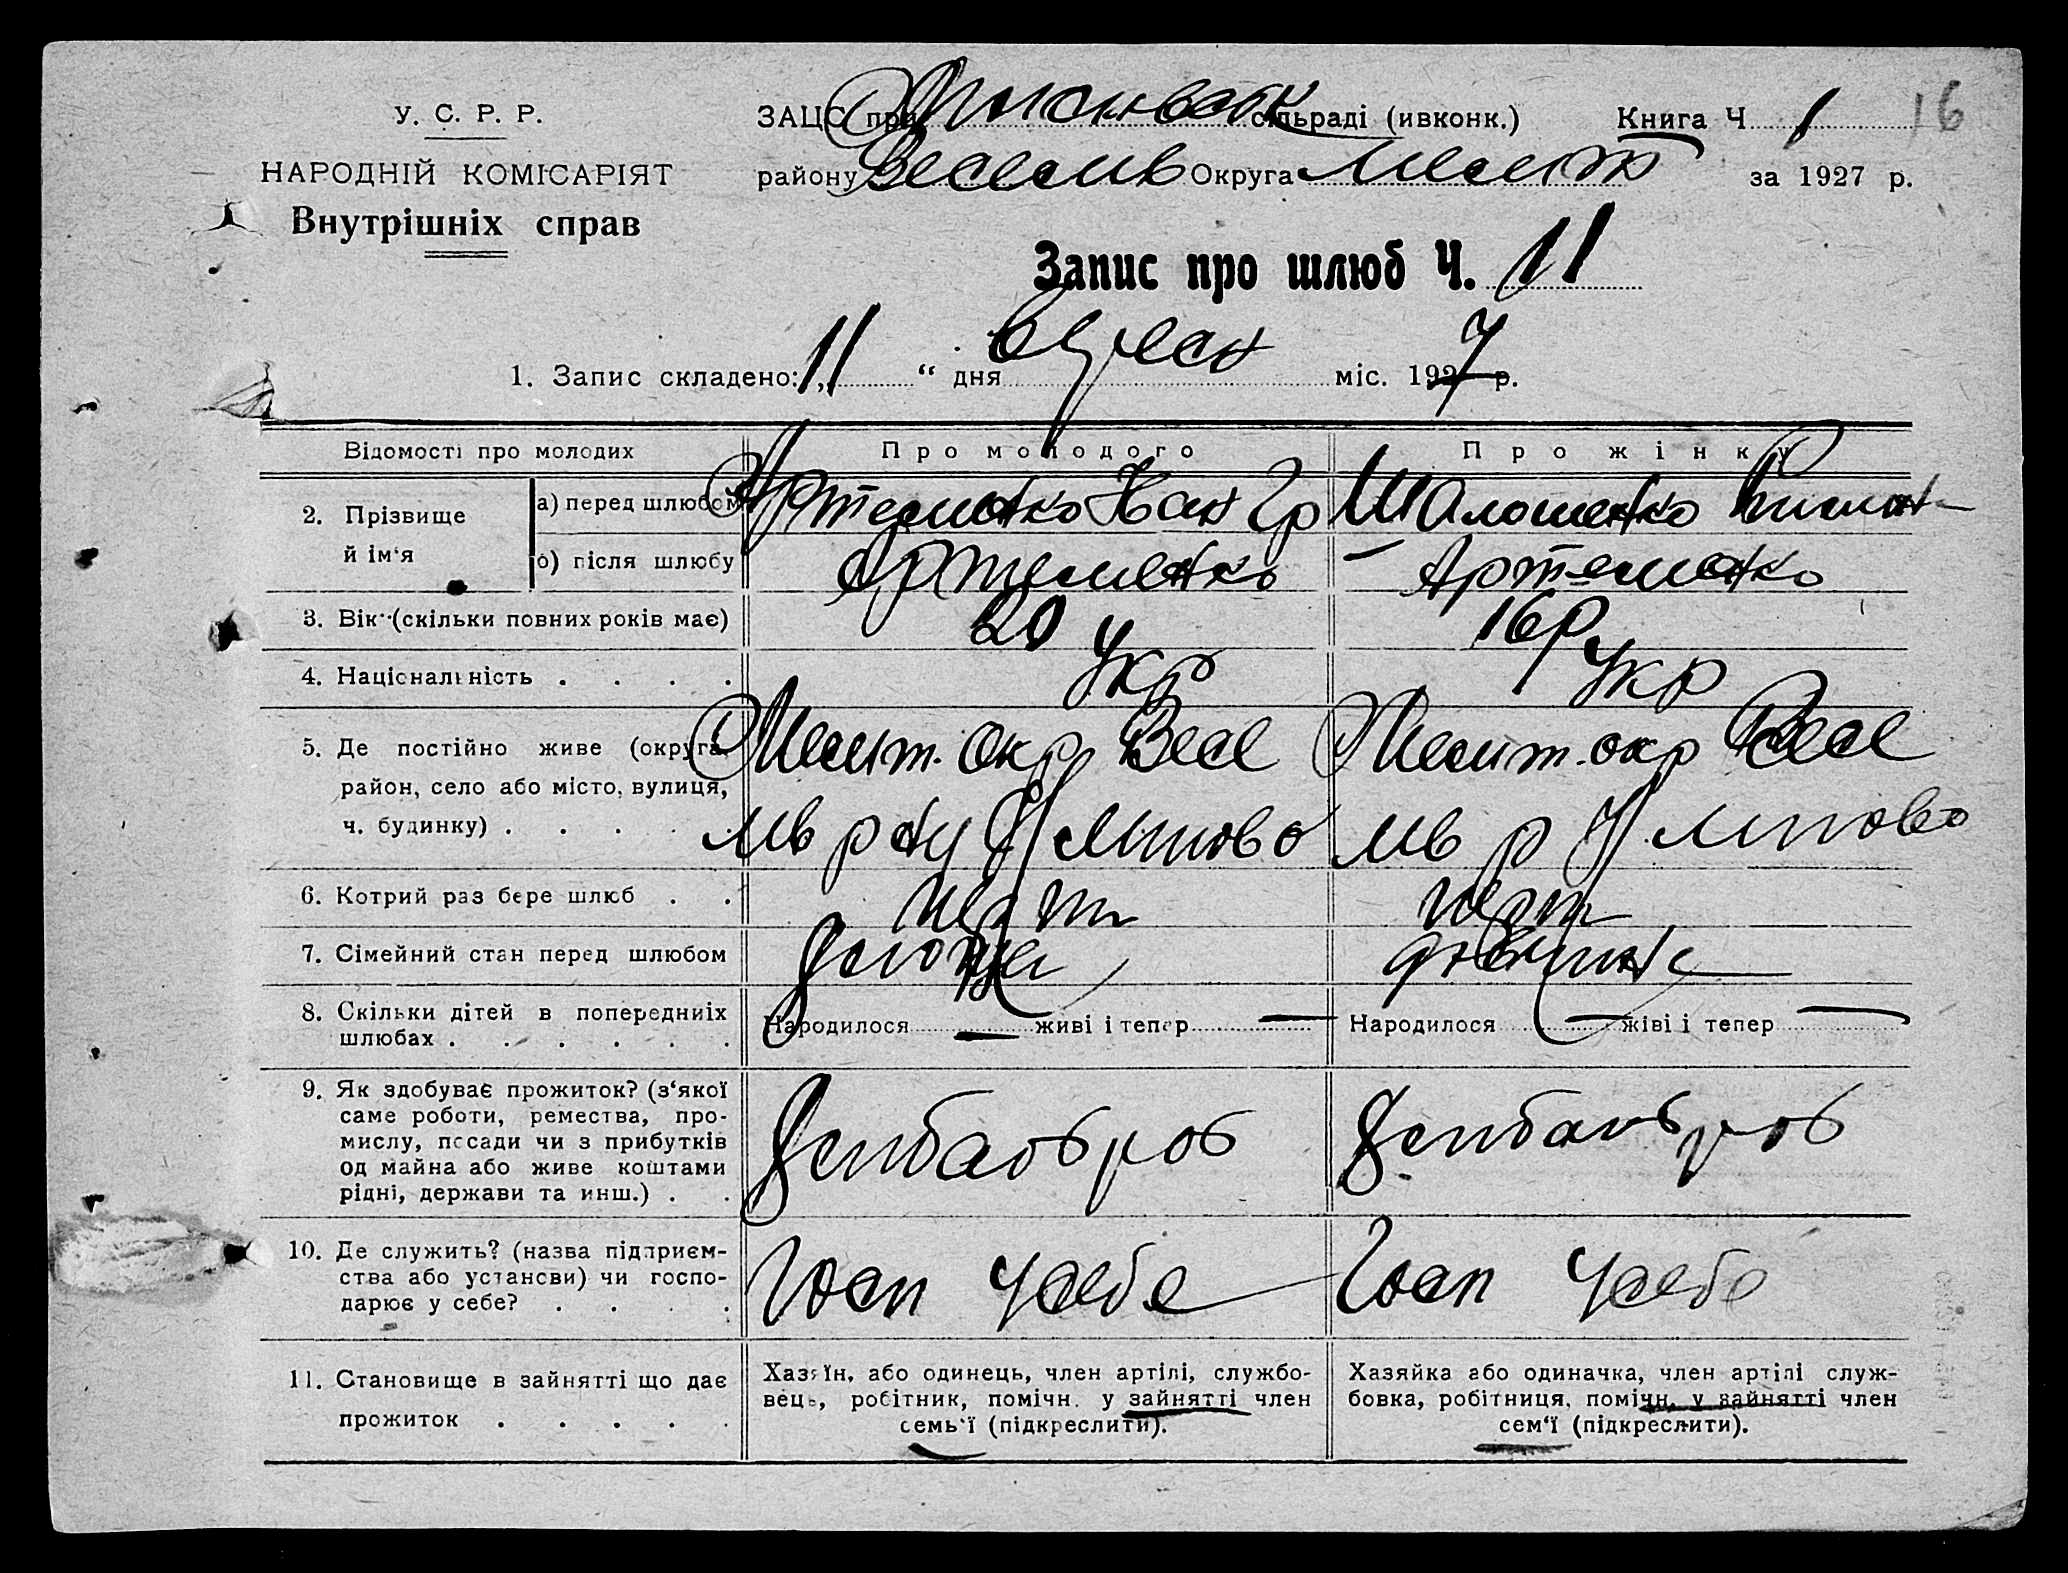 У. С. Р. Р.
НАРОДНІЙ КОМІСАРІЯТ
Внутрішніх справ
ЗАЦС при сільраді (ивконк.) Книга Ч 1 16
району Веселив Округа Мелит за 1927 р.
Запис про шлюб Ч. 11
1. Запис складено: „ 11 “ дня міс. 1927 р.
Відомості про молодих Про молодого Про жінку
2. Прізвище й ім‘я
а) перед шлюбом Артеменко Іван Гр
б) після шлюбу Артеменко Артеменко
3. Вік (скільки повних років має) 20 16 р
4. Національність . . . . Укр Укр
5. Де постійно живе (округа, Мелит. окр Весе Мелит. окр Весе
район, село або місто, вулиця,
ч. будинку) . . . . . лив р ну лив р
6. Котрий раз бере шлюб . . перт перт
7. Сімейний стан перед шлюбом дівчина
8. Скільки дітей в попередниіх Народилося — живі і тепер — Народилося — жіві і тепер —
шлюбах . . . . . .
9. Як здобуває прожиток? (з‘якої
саме роботи, ремества, про-
мислу, посади чи з прибутків
од майна або живе коштами
рідні, держави та инш.) . .
Хлібаоброб Хлібаоброб
10. Де служить? (назва підприєм-
ства або установи) чи госпо-
дарює у себе? . . . .
Госп у себе Госп у себе
11. Становище в зайнятті що дає
прожиток . . . . .
Хазяїн, або одинець, член артілі, службо-
вець, робітник, помічн. у зайнятті член
семь‘ї (підкреслити).
Хазяйка або одиначка, член артілі служ-
бовка, робітниця, помічн. у зайнятті член
сем‘ї (підкреслити).